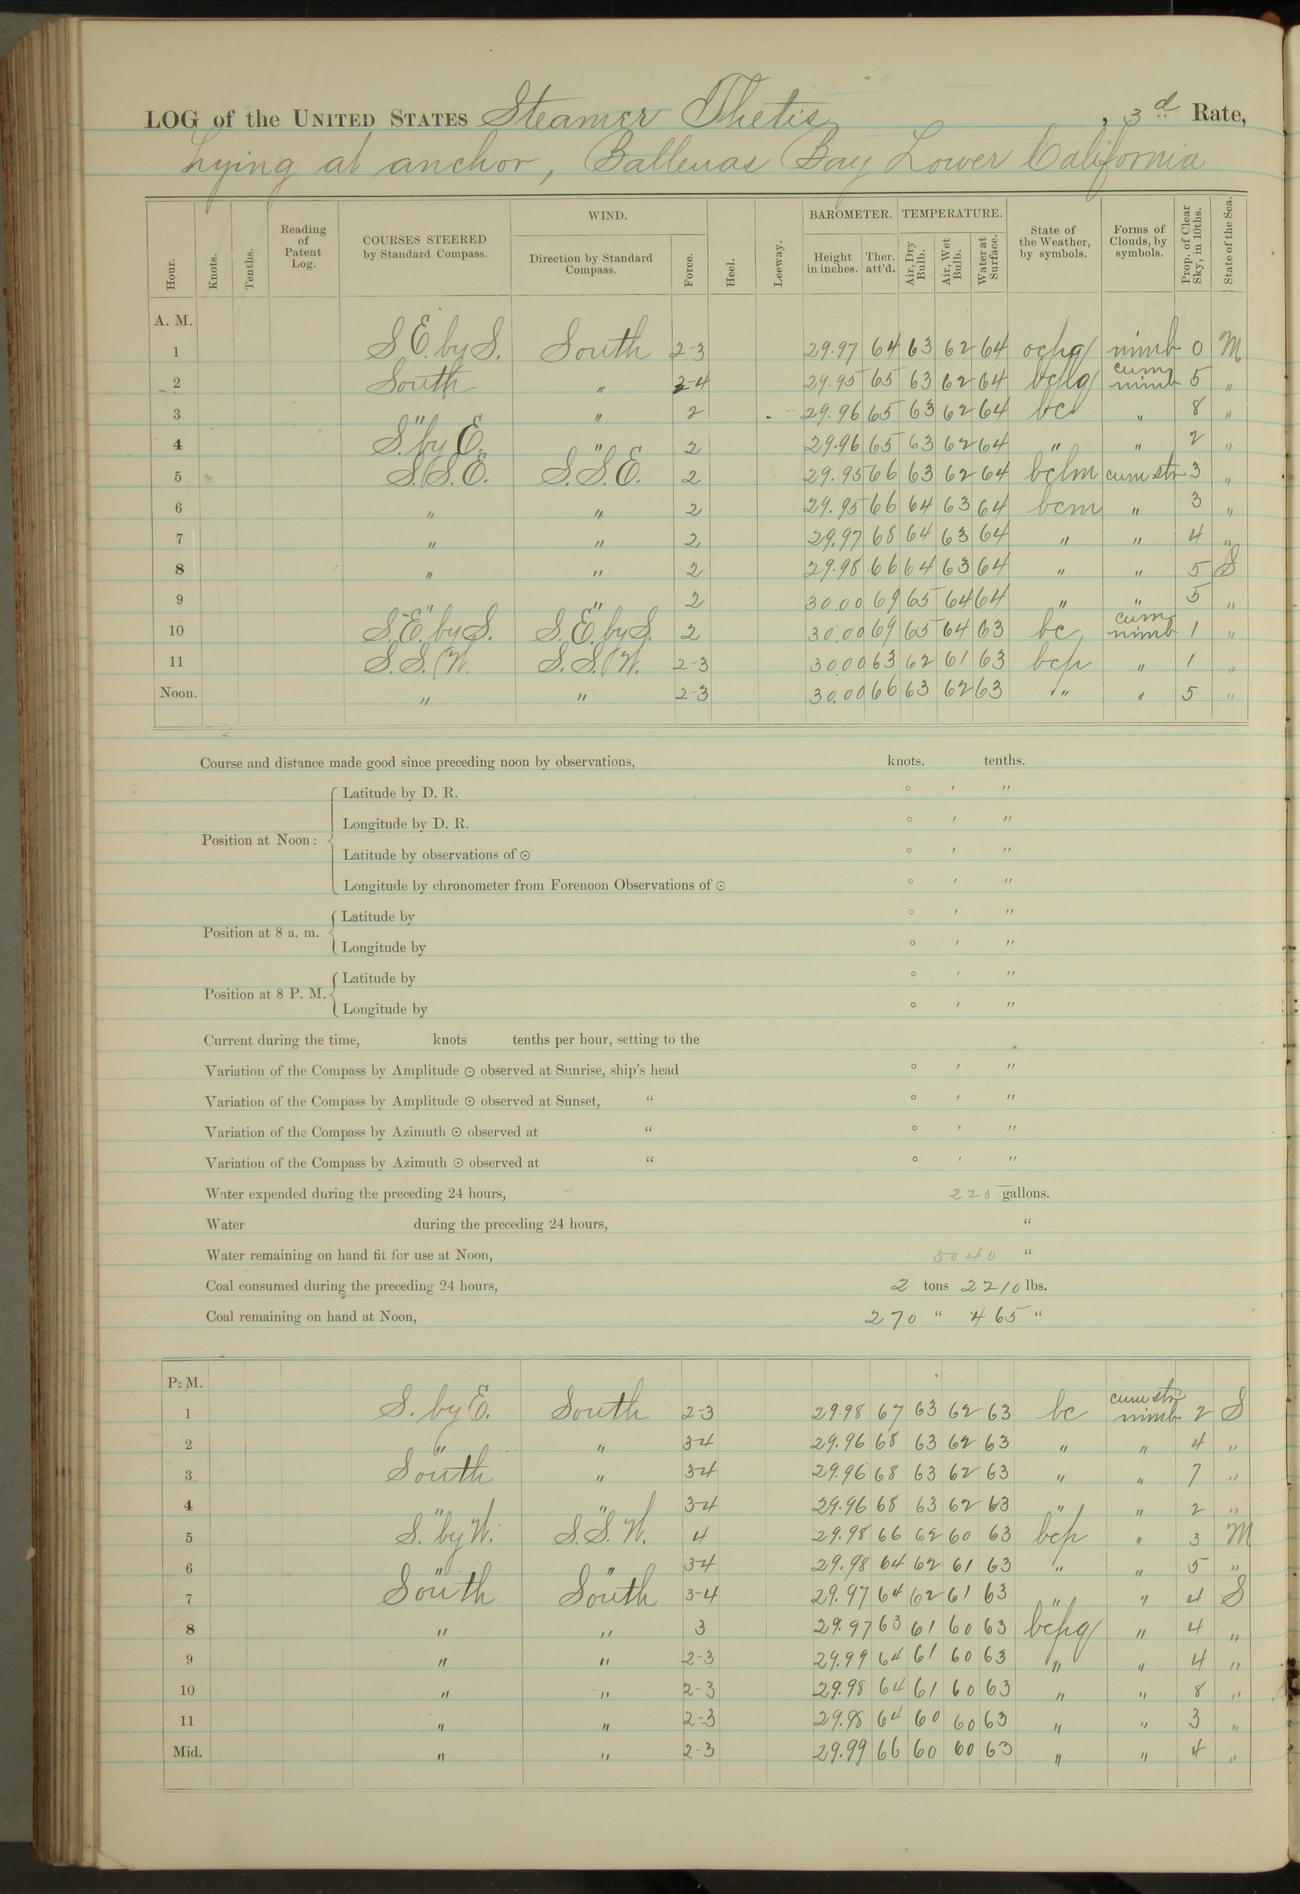 LOG of the UNITED STATES Steamer Thetis, 3d Rate,
Lying at anchor, Ballenas Bay Lower California
Hour. Knots. Tenths. Reading of Patent Log. COURSES STEERED by Standard Compass. WIND. Direction by Standard Compass. Force. Heel. Leeway. BAROMETER. Height in inches. Ther. att'd. TEMPERATURE. Air, Dry Bulb. Air, Wet Bulb. Water at Surface. State of the Weather, by symbols. Forms of Clouds, by symbols. Prop. of Clear Sky, in 10ths. State of the Sea.
A. M.
1 S.E. by S. South 2-3 29.97 64 63 62 64 ocpq nimb 0 M
2 South " 2-4 29.95 65 63 62 64 bcpq cum nimb 5 "
3 " " 2 29.96 65 63 62 64 bc " 8 "
4 S. by E. " 2 29.96 65 63 62 64 " " 2 "
5 S.S.E. S.S.E. 2 29.95 66 63 62 64 bclm cum str 3 "
6 " " 2 29.95 66 64 63 64 bcm " 3 "
7 " " 2 29.97 68 64 63 64 " " 4 "
8 " " 2 29.98 66 64 63 64 " " 5 S
9 " " 2 30.00 69 65 64 64 " " 5 "
10 S.E. by S. S.E. by S. 2 30.00 69 65 64 63 bc cum nimb 1 "
11 S.S.W. S.S.W. 2-3 30.00 63 62 61 63 bcp " 1 "
Noon. " " 2-3 30.00 66 63 62 63 " " 5 "
Course and distance made good since preceding noon by observations, knots. tenths.
Position at Noon: Latitude by D. R. ° ′ ″
Longitude by D. R. ° ′ ″
Latitude by observations of ☉ ° ′ ″
Longitude by chronometer from Forenoon Observations of ☉ ° ′ ″
Position at 8 a. m. Latitude by ° ′ ″
Longitude by ° ′ ″
Position at 8 P. M. Latitude by ° ′ ″
Longitude by ° ′ ″
Current during the time, knots tenths per hour, setting to the
Variation of the Compass by Amplitude ☉ observed at Sunrise, ship's head ° ′ ″
Variation of the Compass by Amplitude ☉ observed at Sunset, " ° ′ ″
Variation of the Compass by Azimuth ☉ observed at " ° ′ ″
Variation of the Compass by Azimuth ☉ observed at " ° ′ ″
Water expended during the preceding 24 hours, 225 gallons.
Water during the preceding 24 hours, "
Water remaining on hand fit for use at Noon, 5040 "
Coal consumed during the preceding 24 hours, 2 tons 2210 lbs.
Coal remaining on hand at Noon, 270 " 465 "
P. M.
1 S. by E. South 2-3 29.98 67 63 62 63 bc cum str nimb 2 S
2 " " 3-4 29.96 68 63 62 63 " " 4 "
3 South " 3-4 29.96 68 63 62 63 " " 7 "
4 " " 3-4 29.96 68 63 62 63 " " 2 "
5 S. by W. S.S.W. 4 29.98 66 62 60 63 bcp " 3 M
6 " " 3-4 29.98 64 62 61 63 " " 5 "
7 South South 3-4 29.97 64 62 61 63 " " 4 S
8 " " 3 29.97 63 61 60 63 bcpq " 4 "
9 " " 2-3 29.99 64 61 60 63 " " 4 "
10 " " 2-3 29.98 64 61 60 63 " " 8 "
11 " " 2-3 29.98 64 60 60 63 " " 3 "
Mid. " " 2-3 29.99 66 60 60 63 " " 4 "